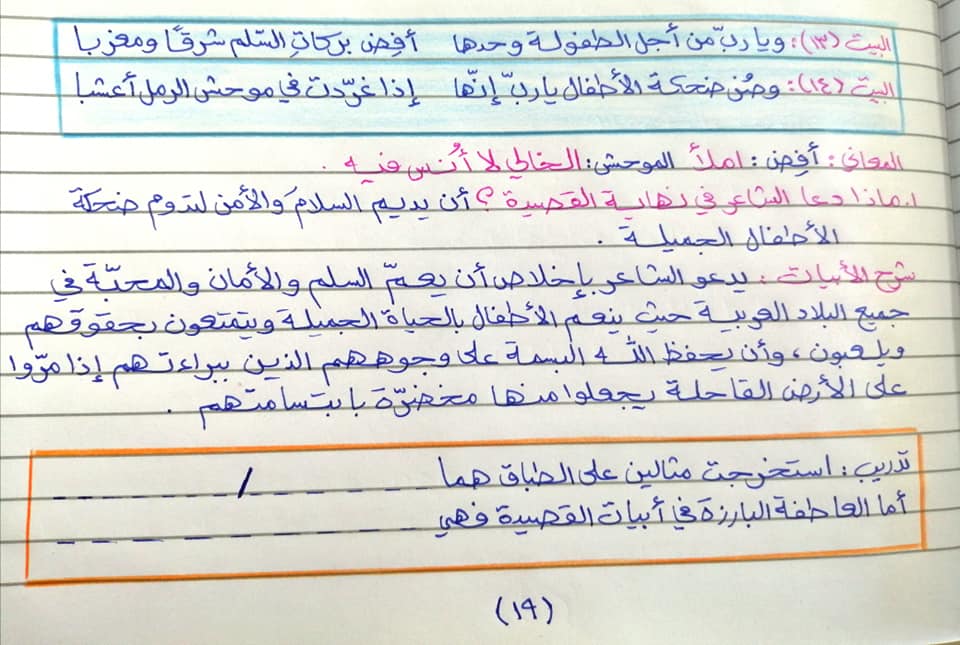 البيت (١٣): ويا ربّ من أجل الطفولة وحدها أفِض بركاتِ السّلم شرقًا ومغربا
البيت (١٤): وصُن ضحكة الأطفال يا ربّ إنّها إذا غرّدت في موحش الرمل أعشبا
المعاني: أفِض: املأ الموحش: الخالي لا أُنس فيه.
١. ماذا دعا الشاعر في نهاية القصيدة؟ أن يديم السلامَ والأمن لتدوم ضحكة
الأطفال الجميلة.
شرح الأبيات: يدعو الشاعر بإخلاص أن يعمّ السلم والأمان والمحبّة في
جميع البلاد العربية حيث ينعم الأطفال بالحياة الجميلة ويتمتعون بحقوقهم
ويلعبون، وأن يحفظ الله البسمة على وجوههم الذين ببراءتهم إذا مرّوا
على الأرض القاحلة يجعلوا منها مخضرّة بابتسامتهم.
تدريب: استخرجت مثالين على الطباق هما _ _ _ _ / _ _ _ _
أما العاطفة البارزة في أبيات القصيدة فهي _ _ _ _ _ _ _ _
(١٩)